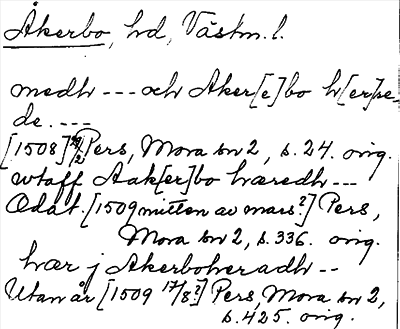 Åkerbo, hd, Västm. l.
medh --- och Aker[e]bo h[er]re-
de. ---
[1508] 29/2 Pers, Mora bn 2, s. 24. orig.
wtaff Aak[er]bo hæredh ---
Odat. [1509 mitten av mars?] Pers,
Mora bn 2, s. 336. orig.
hær j Akerboheradh --
Utan år [1509 17/8?] Pers, Mora bn 2,
s. 425. orig.